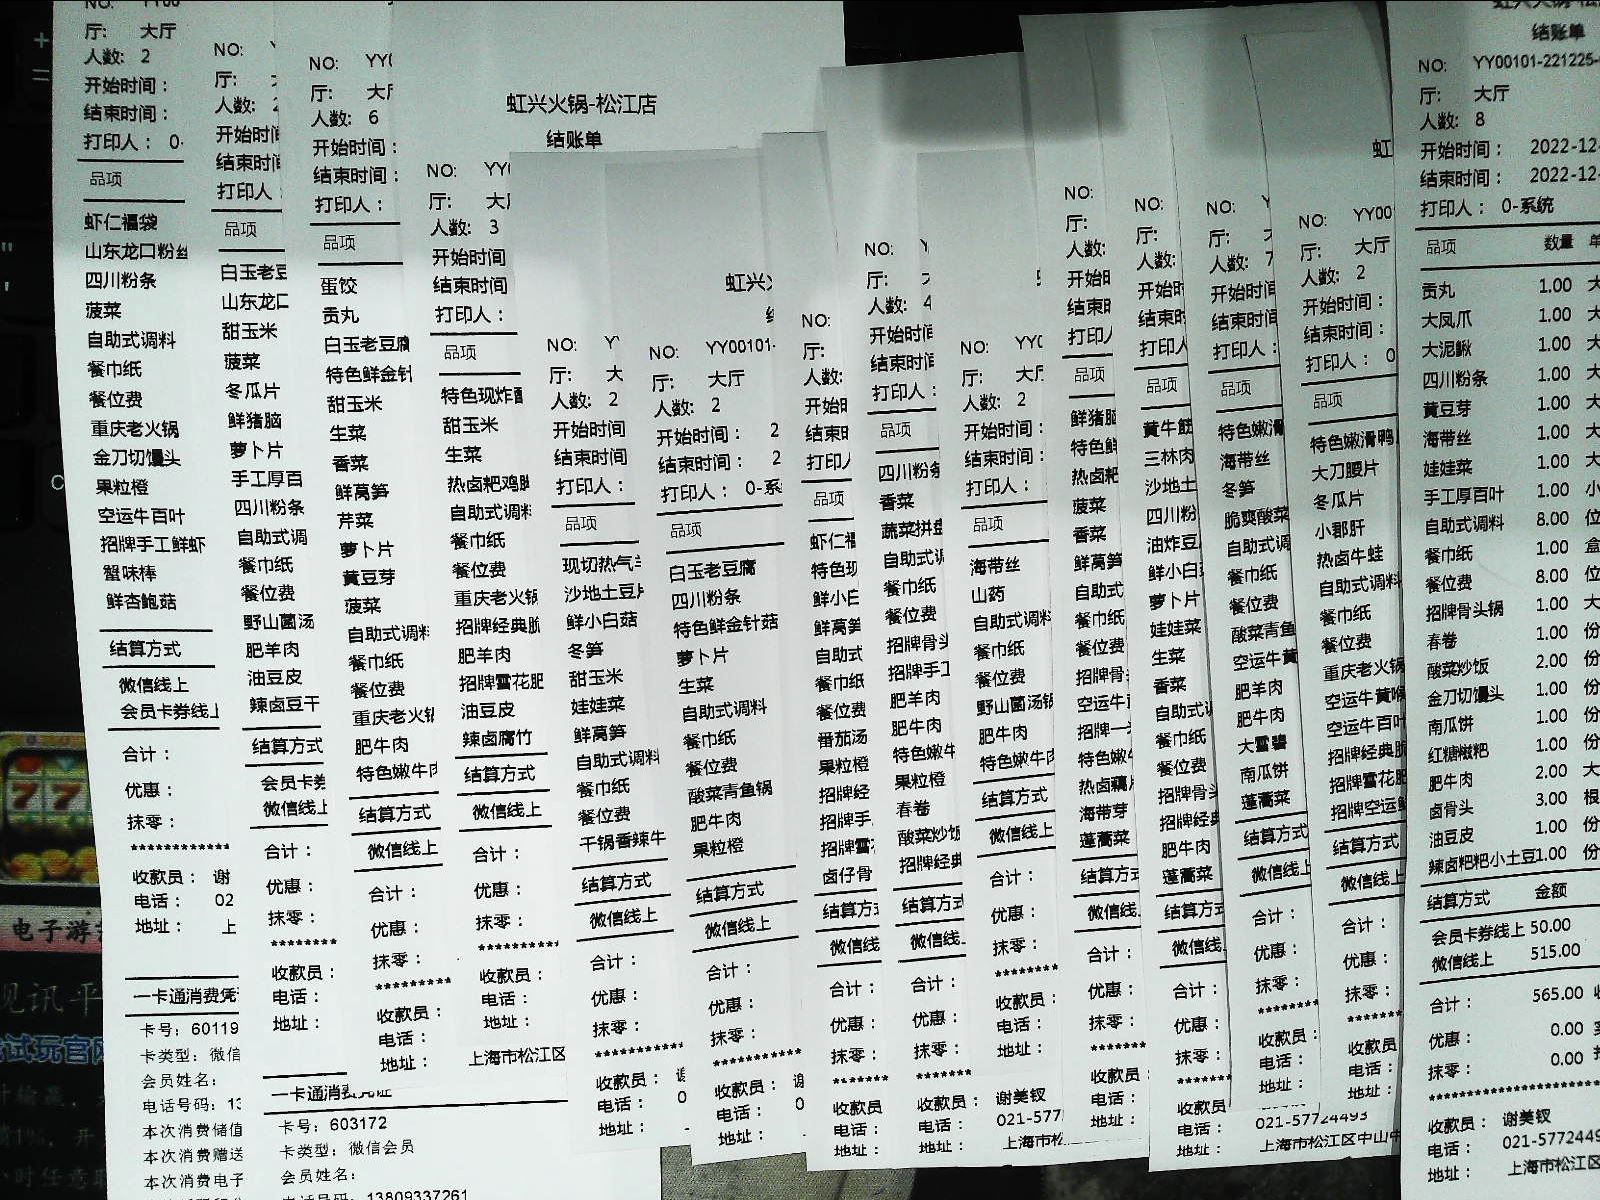 NO:
厅: 大厅
人数: 2
开始时间:
结束时间:
打印人: 0-
品项
虾仁福袋
山东龙口粉丝
四川粉条
菠菜
自助式调料
餐巾纸
餐位费
重庆老火锅
金刀切馒头
果粒橙
空运牛百叶
招牌手工鲜虾
蟹味棒
鲜杏鲍菇
结算方式
微信线上
会员卡券线上
合计:
优惠:
抹零:
***********
收款员: 谢
电话: 02
地址: 上
一卡通消费凭
卡号: 60119
卡类型: 微信
会员姓名:
电话号码: 13
本次消费储值
本次消费赠送
本次消费电子
NO:
厅:
人数:
开始时间
结束时间
打印人:
品项
白玉老豆
山东龙口
甜玉米
菠菜
冬瓜片
鲜猪脑
萝卜片
手工厚百
四川粉条
自助式调
餐巾纸
餐位费
野山菌汤
肥羊肉
油豆皮
辣卤豆干
结算方式
会员卡券
微信线上
合计:
优惠:
抹零:
********
收款员:
电话:
地址:
一卡通消费凭证
卡号: 603172
卡类型: 微信会员
会员姓名:
电话号码: 13809337261
NO: YY
厅: 大厅
人数: 6
开始时间:
结束时间:
打印人:
品项
蛋饺
贡丸
白玉老豆腐
特色鲜金针
甜玉米
生菜
香菜
鲜莴笋
芹菜
萝卜片
黄豆芽
菠菜
自助式调料
餐巾纸
餐位费
重庆老火锅
肥牛肉
特色嫩牛肉
结算方式
微信线上
合计:
优惠:
抹零:
*********
收款员:
电话:
地址: 上海市松江区
虹兴火锅-松江店
结账单
NO: YY0
厅: 大
人数: 3
开始时间
结束时间
打印人:
品项
特色现炸酥
甜玉米
生菜
热卤粑鸡脚
自助式调料
餐巾纸
餐位费
重庆老火锅
招牌经典脆
肥羊肉
招牌雪花肥
油豆皮
辣卤腐竹
结算方式
微信线上
合计:
优惠:
抹零:
**********
收款员:
电话:
地址:
NO: Y
厅: 大
人数: 2
开始时间
结束时间
打印人:
品项
现切热气羊
沙地土豆片
鲜小白菇
冬笋
甜玉米
娃娃菜
鲜莴笋
自助式调料
餐巾纸
餐位费
干锅香辣牛
结算方式
微信线上
合计:
优惠:
抹零:
***********
收款员: 谢
电话: 0
地址:
虹兴
NO: YY00101-
厅: 大厅
人数: 2
开始时间: 2
结束时间: 2
打印人: 0-系
品项
白玉老豆腐
四川粉条
特色鲜金针菇
萝卜片
生菜
自助式调料
餐巾纸
餐位费
酸菜青鱼锅
肥牛肉
果粒橙
结算方式
微信线上
合计:
优惠:
抹零:
***********
收款员: 谢
电话: 0
地址:
NO:
厅:
人数:
开始时
结束时
打印人
品项
虾仁福
特色现
鲜小白
鲜莴笋
自助式
餐巾纸
餐位费
番茄汤
果粒橙
招牌经
招牌手
招牌雪
卤仔骨
结算方式
微信线
合计:
优惠:
抹零:
*******
收款员
电话:
地址:
NO:
厅:
人数: 4
开始时间
结束时间
打印人:
品项
四川粉条
香菜
蔬菜拼盘
自助式调
餐巾纸
餐位费
招牌骨头
招牌手工
肥羊肉
肥牛肉
特色嫩牛
果粒橙
春卷
酸菜炒饭
招牌经典
结算方式
微信线上
合计:
优惠:
抹零:
*******
收款员:
电话:
地址:
NO: YY0
厅: 大厅
人数: 2
开始时间
结束时间
打印人:
品项
海带丝
山药
自助式调料
餐巾纸
餐位费
野山菌汤锅
肥牛肉
特色嫩牛肉
结算方式
微信线上
合计:
优惠:
抹零:
********
收款员:
电话:
地址:
谢美钗
021-577
上海市松
NO:
厅:
人数:
开始时
结束时
打印人
品项
鲜猪脑
特色鲜
热卤粑
菠菜
香菜
鲜莴笋
自助式
餐巾纸
餐位费
招牌骨
空运牛
招牌一
特色嫩牛
热卤藕片
海带芽
蓬蒿菜
结算方式
微信线
合计:
优惠:
抹零:
*******
收款员
电话:
地址:
NO:
厅:
人数:
开始时
结束时
打印人
品项
黄牛筋
三林肉
沙地土
四川粉
油炸豆
鲜小白
萝卜片
娃娃菜
生菜
香菜
自助式调
餐巾纸
餐位费
招牌骨头
招牌经典
肥牛肉
蓬蒿菜
结算方式
微信线上
合计:
优惠:
抹零:
*******
收款员:
电话:
地址:
NO: Y
厅:
人数: 7
开始时间
结束时间
打印人:
品项
特色嫩滑
海带丝
冬笋
脆爽酸菜
自助式调
餐巾纸
餐位费
酸菜青鱼
空运牛黄
肥羊肉
肥牛肉
大雪碧
南瓜饼
蓬蒿菜
结算方式
微信线上
合计:
优惠:
抹零:
********
收款员:
电话:
地址:
021-57724493
上海市松江区中山中
虹
NO: YY00
厅: 大厅
人数: 2
开始时间:
结束时间:
打印人: 0
品项
特色嫩滑鸭
大刀腰片
冬瓜片
小郡肝
热卤牛蛙
自助式调料
餐巾纸
餐位费
重庆老火锅
空运牛黄喉
空运牛百叶
招牌经典脆
招牌雪花肥
招牌空运鲜
结算方式
微信线上
合计:
优惠:
抹零:
********
收款员:
电话:
地址:
结账单
NO: YY00101-221225-
厅: 大厅
人数: 8
开始时间: 2022-12-
结束时间: 2022-12-
打印人: 0-系统
品项 数量 单
贡丸 1.00 大
大凤爪 1.00 大
大泥鳅 1.00 大
四川粉条 1.00 大
黄豆芽 1.00 大
海带丝 1.00 大
娃娃菜 1.00 大
手工厚百叶 1.00 小
自助式调料 8.00 位
餐巾纸 1.00 盒
餐位费 8.00 位
招牌骨头锅 1.00 大
春卷 1.00 份
酸菜炒饭 2.00 份
金刀切馒头 1.00 份
南瓜饼 1.00 份
红糖糍粑 1.00 份
肥牛肉 2.00 大
卤骨头 3.00 根
油豆皮 1.00 份
辣卤粑粑小土豆1.00 份
结算方式 金额
会员卡券线上 50.00
微信线上 515.00
合计: 565.00
优惠: 0.00
抹零: 0.00
收款员: 谢美钗
电话: 021-5772449
地址: 上海市松江区
电子游
视讯平
试玩官网